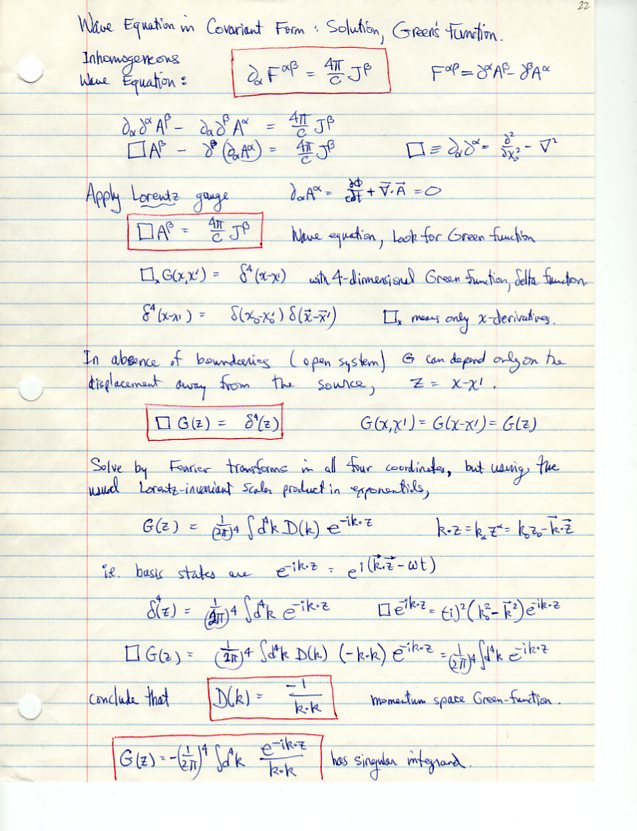 22
Wave Equation in Covariant Form : Solution, Green's Function.
Inhomogeneous
Wave Equation : ∂_α F^{αβ} = 4π/c J^β F^{αβ} = ∂^α A^β − ∂^β A^α
∂_α ∂^α A^β − ∂_α ∂^β A^α = 4π/c J^β
□ A^β − ∂^β (∂_α A^α) = 4π/c J^β □ ≡ ∂_α ∂^α = ∂²/∂x₀² − ∇²
Apply Lorentz gauge ∂_α A^α = ∂Φ/c∂t + ∇⃗·A⃗ = 0
□ A^β = 4π/c J^β Wave equation, Look for Green function
□_x G(x,x') = δ⁴(x-x') with 4-dimensional Green function, delta function
δ⁴(x-x') = δ(x₀-x₀') δ(x⃗-x⃗') □_x means only x-derivatives.
In absence of boundaries (open system) G can depend only on the
displacement away from the source, z = x-x'.
□ G(z) = δ⁴(z) G(x,x') = G(x-x') = G(z)
Solve by Fourier transforms in all four coordinates, but using the
usual Lorentz-invariant scalar product in exponentials,
G(z) = 1/(2π)⁴ ∫d⁴k D(k) e^{-ik·z} k·z = k_α z^α = k₀z₀ − k⃗·z⃗
i.e. basis states are e^{-ik·z} = e^{i(k⃗·z⃗ − ωt)}
δ⁴(z) = 1/(2π)⁴ ∫d⁴k e^{-ik·z} □ e^{-ik·z} = (-i)² (k₀² − k⃗²) e^{-ik·z}
□ G(z) = 1/(2π)⁴ ∫d⁴k D(k) (−k·k) e^{-ik·z} = 1/(2π)⁴ ∫d⁴k e^{-ik·z}
conclude that D(k) = −1/k·k momentum space Green-function.
G(z) = −(1/2π)⁴ ∫d⁴k e^{-ik·z}/k·k has singular integrand.